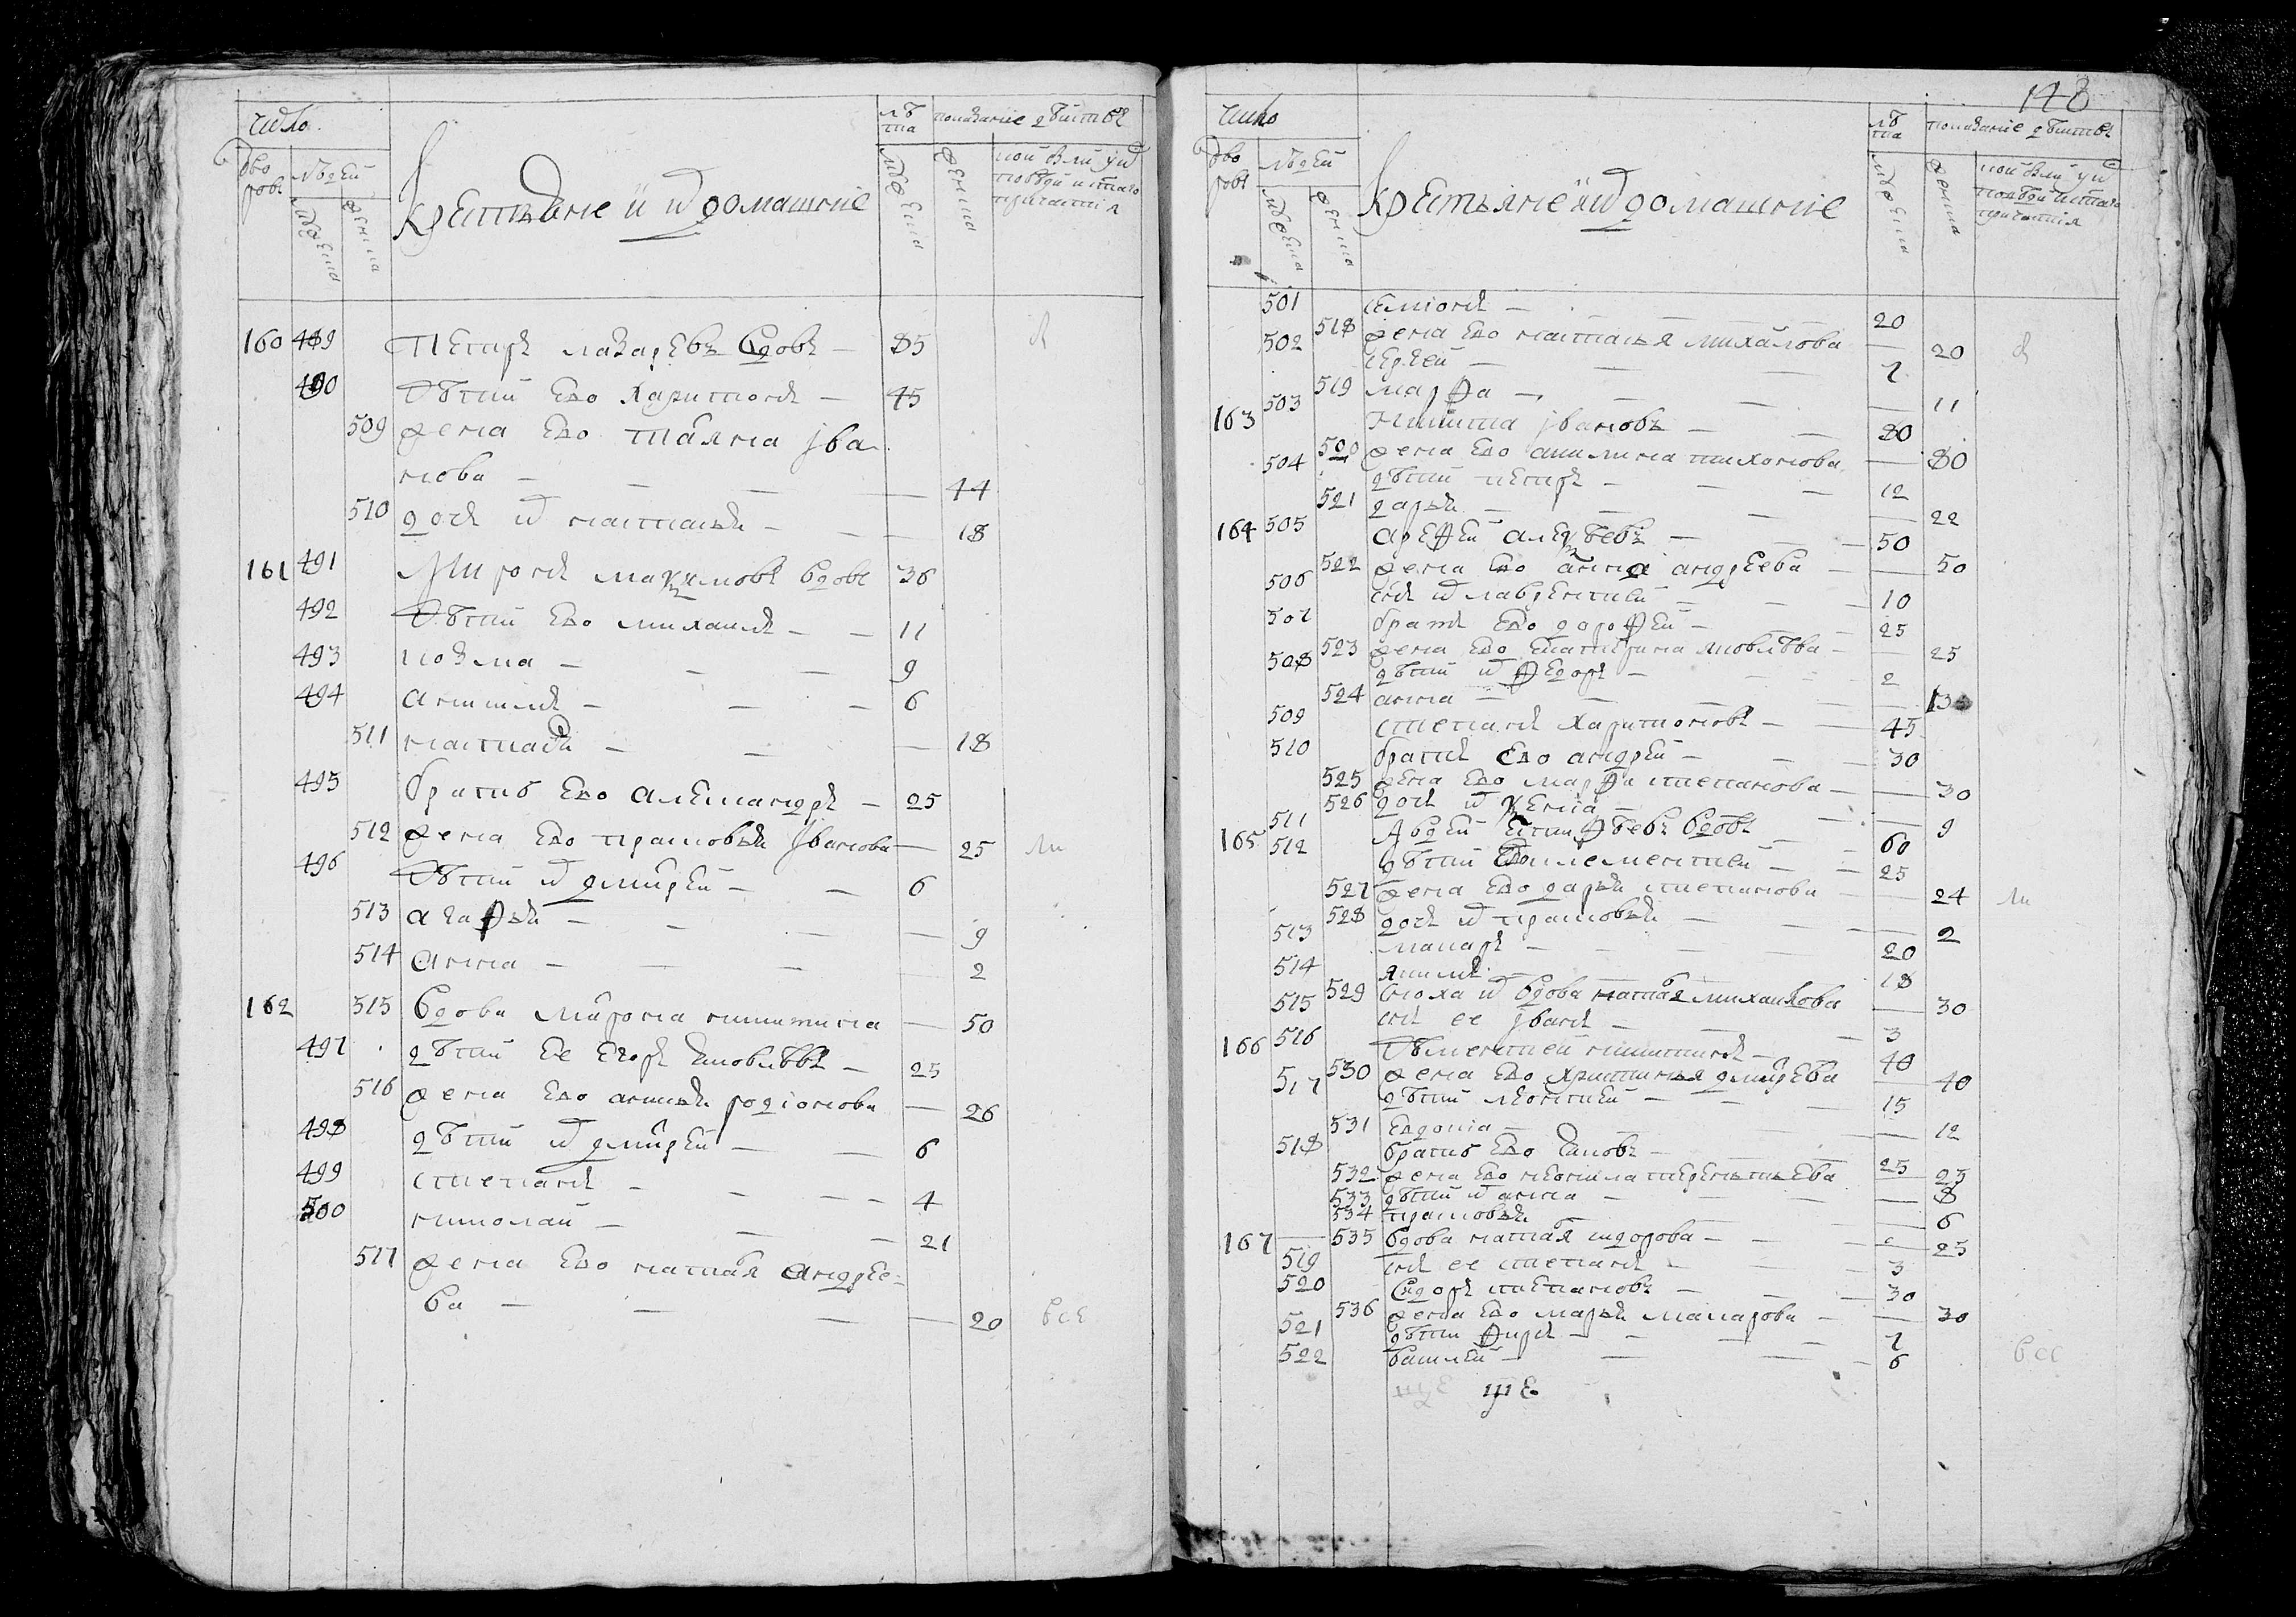 число
дворовъ людей
мужеска женска
крестьяне и ихъ домашние
лѣта показание дѣйства
мужеска женска
160 489 Петръ лазаревъ вдовъ — 85
490 Дѣти ево харитонъ — 45
509 жена ево татьяна ива
нова — — — 44
510 дочь их настасья — — 18
161 491 Миронъ максимовъ вдовъ 36
492 Дѣти ево михаилъ — — 11
493 козма — — — 9
494 никита — — 6
511 настасья — — — 18
495 братъ ево александръ — 25
512 жена ево прасковья иванова — 25
496 Дѣти их дмитрей — — 6
513 агафья — — — 9
514 анна — — — 2
162 515 вдова мавра никитина — 50
497 дѣти ее егоръ яковлевъ — 25
516 жена ево аксинья родионова — 26
498 дѣти их дмитрей — — 6
499 степанъ — — — 4
500 николай — — — 21
517 жена ево наталья андрее-
ва — — — 20 все
148
число
дворовъ людей
мужеска женска
крестьяне и ихъ домашние
лѣта показание дѣйства
мужеска женска
501 семионъ — — 20
518 жена ево настасья михайлова — 20
502 сергей — — — 7
519 марфа — — — 11
163 503 Никита ивановъ — — 80
520 жена ево акилина тихонова — 80
504 дѣти петръ — — 12
521 дарья — — — 22
164 505 арефей алексѣевъ — — 50
522 жена ево анна андреева — 50
506 сынъ их лаврентий — — 10
507 братъ ево дорофей — — 25
523 жена ево екатерина яковлева — 25
508 дѣти их федоръ — — 2
524 анна — — —
509 степанъ харитоновъ — — 45
510 братъ ево андрей — — 30
525 жена ево марфа степанова — 30
526 дочь их ксения — — 9
165 511 Авдей евстифѣевъ вдовъ — 60
512 дѣти ево клементей — — 25
527 жена ево дарья степанова — 24
528 дочь их прасковья — — 2
513 макаръ — — — 20
514 якимъ — — 18
529 сноха их вдова наталья михайлова — 30
515 сынъ ее иванъ — — 3
166 516 Дементей никитинъ — 40
530 жена ево христинья дмитрева — 40
517 дѣти леонтией — — 15
531 евдокия — — 12
518 братъ ево яковъ — — 25
532 жена ево неонила терентьева 25
533 дѣти их анна — — 8
534 прасковья — — 6
167 535 вдова наталья сидорова — — 25
519 сынъ ее степанъ — — 3
520 Сидоръ степановъ — — 30
536 жена ево марья макарова — 30
521 дѣти фирсъ — — 7
522 василей — — — 6 все